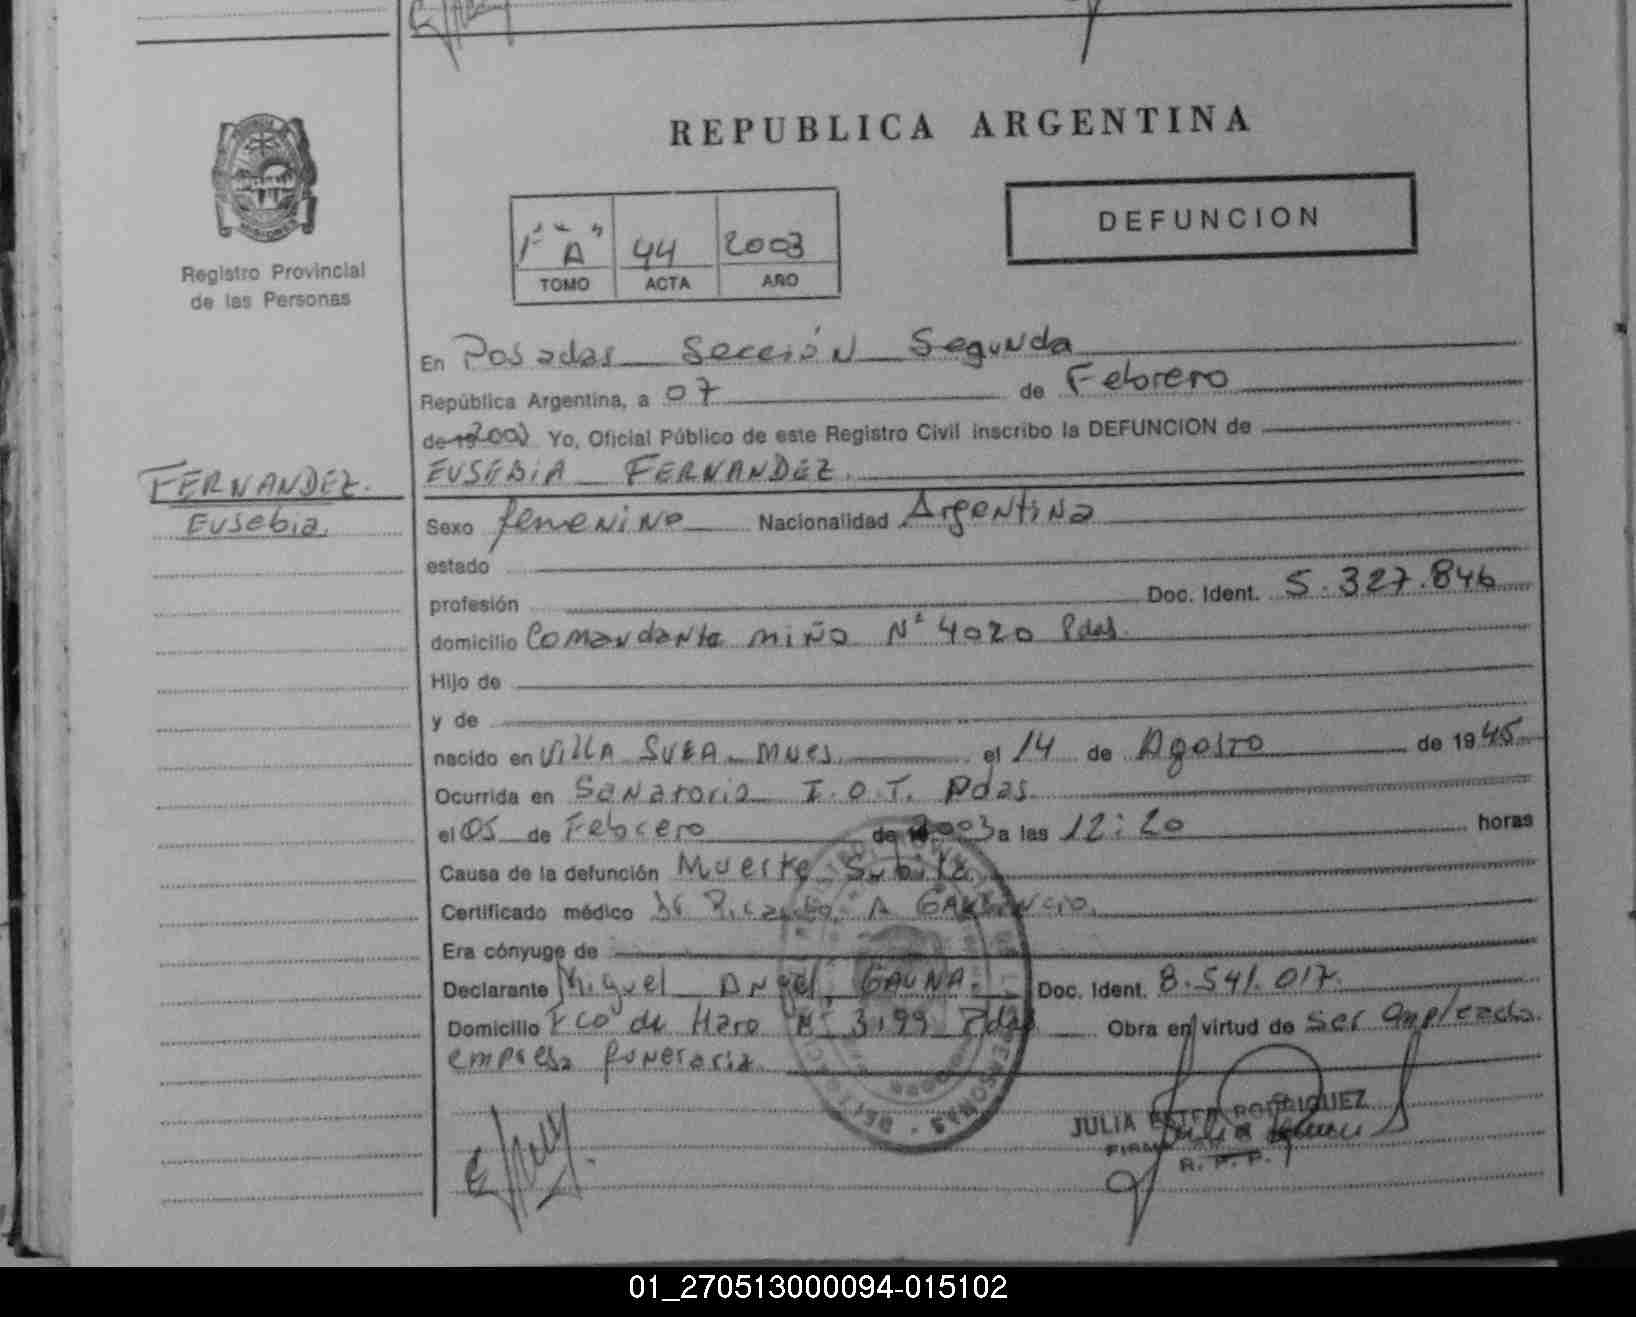 REPUBLICA ARGENTINA
Registro Provincial
de las Personas
1° "A" 44 2003
TOMO ACTA AÑO
DEFUNCION
En Posadas Sección Segunda
República Argentina, a 07 de Febrero
de 19 2003 Yo, Oficial Público de este Registro Civil inscribo la DEFUNCION de
FERNANDEZ.
Eusebia.
EUSEBIA FERNANDEZ.
Sexo femenino Nacionalidad Argentina
estado
profesión Doc. Ident. 5.327.846
domicilio Comandante Miño N° 4020 Pdas.
Hijo de
y de
nacido en VILLA SVEA Mnes. el 14 de Agosto de 1945
Ocurrida en Sanatorio I.O.T. Pdas.
el 05 de Febrero de 2003 a las 12:20 horas
Causa de la defunción Muerte Súbita.
Certificado médico Dr Ricardo A
Era cónyuge de
Declarante Miguel Angel GAUNA. Doc. Ident. 8.541.017.
Domicilio Fco de Haro N° 3199 Pdas Obra en virtud de ser empleado
empresa funeraria.
JULIA ESTER RODRIGUEZ
R. P. P.
01_270513000094-015102